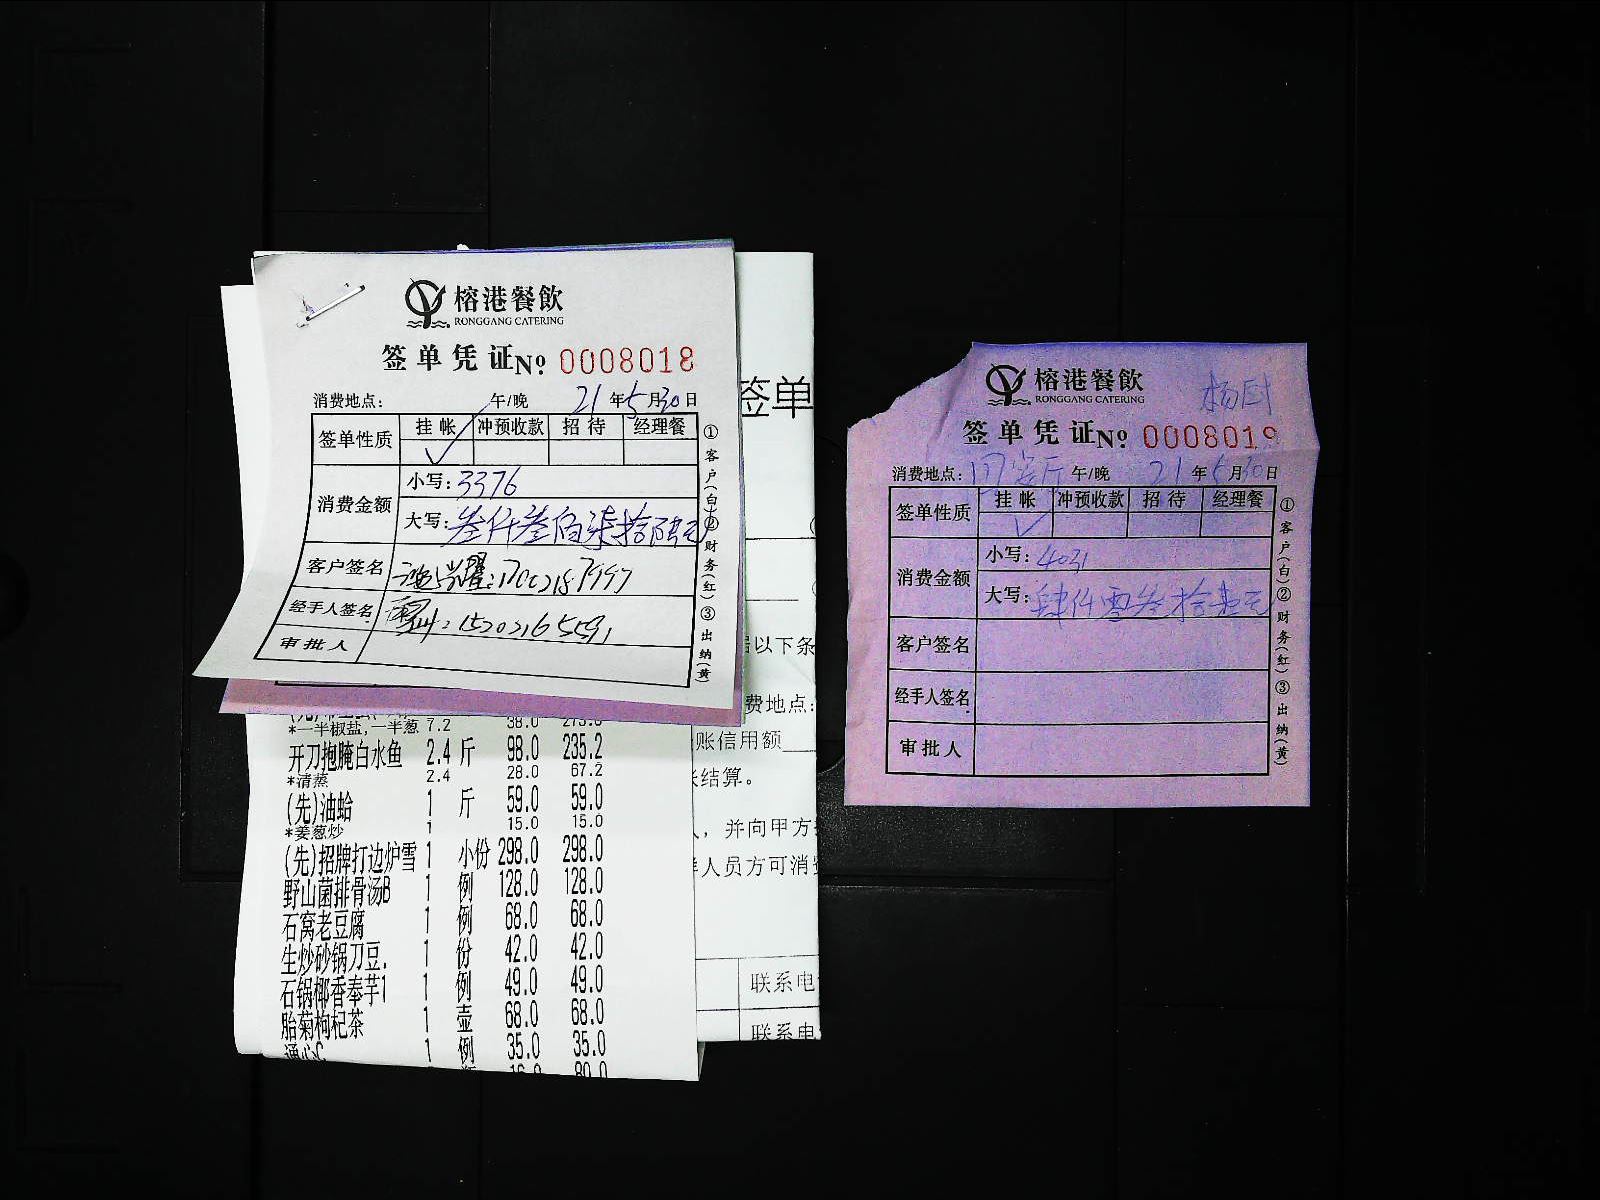 榕港餐飲
RONGGANG CATERING
签单凭证No 0008018
消费地点： 午/晚 21年5月30日
签单性质 挂帐 冲预收款 招待 经理餐
消费金额 小写：3376
大写：叁仟叁佰柒拾陆元
客户签名
经手人签名
审批人
①客户(白)②财务(红)③出纳(黄)
*一半椒盐,一半葱 7.2 38.0
开刀抱腌白水鱼 2.4 斤 98.0 235.2
*清蒸 2.4 28.0 67.2
(先)油蛤 1 斤 59.0 59.0
*姜葱炒 1 15.0 15.0
(先)招牌打边炉雪 1 小份 298.0 298.0
野山菌排骨汤B 1 例 128.0 128.0
石窝老豆腐 1 例 68.0 68.0
生炒砂锅刀豆. 1 份 42.0 42.0
石锅椰香奉芋1 1 例 49.0 49.0
胎菊枸杞茶 1 壶 68.0 68.0
通心C 1 例 35.0 35.0
签单
以下条
费地点:
账信用额
结算。
，并向甲方
人员方可消
联系电
联系电
榕港餐飲
RONGGANG CATERING
签单凭证No 0008019
消费地点： 午/晚 21年5月30日
签单性质 挂帐 冲预收款 招待 经理餐
消费金额 小写：4031
大写：肆仟零叁拾壹元
客户签名
经手人签名
审批人
①客户(白)②财务(红)③出纳(黄)